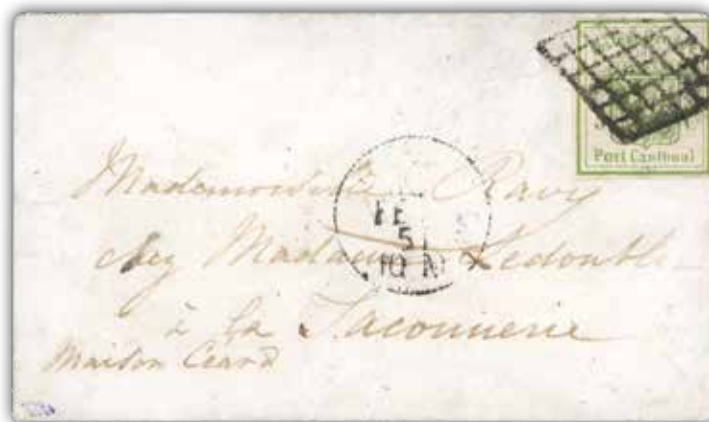 Port Cantonal
Mademoiselle Ravy
chez Madame Ledouble
à la Taconnerie
Maison Ceard
51
10